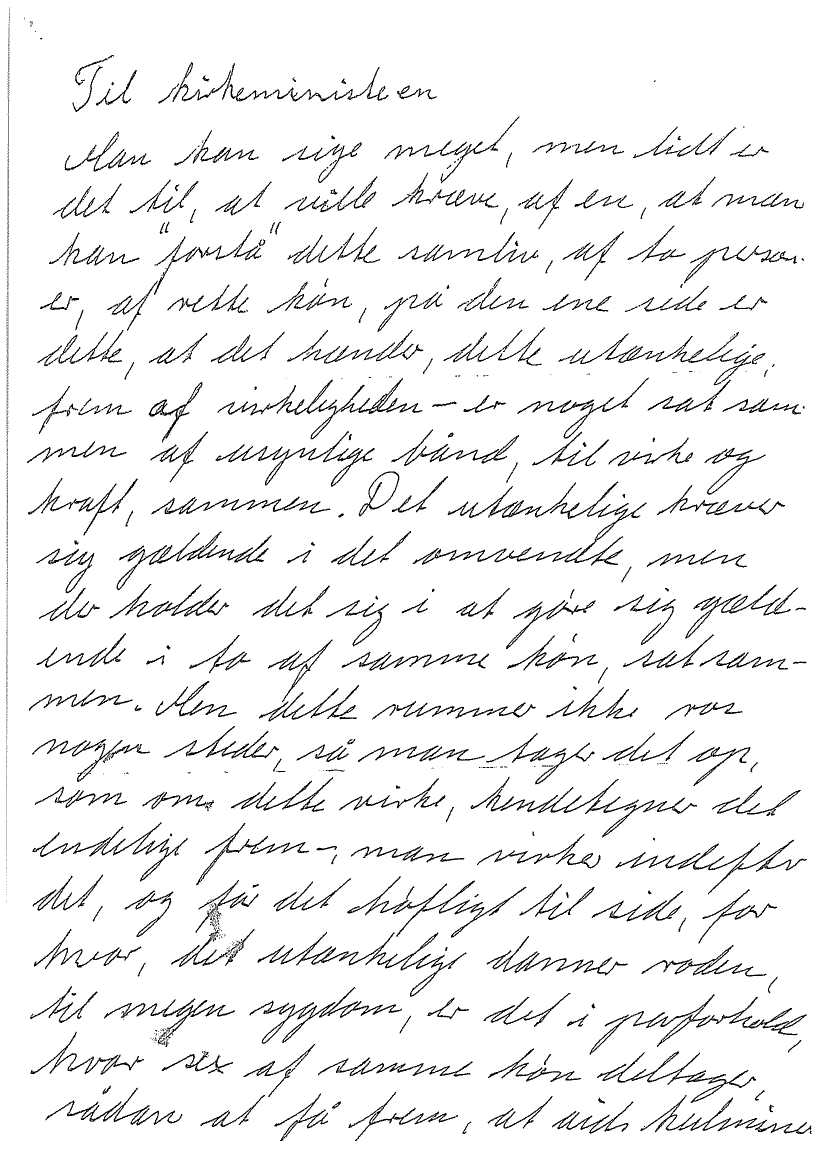 Til kirkeministeren
Man kan sige meget, men lidt er
det til, at ville kræve, af en, at man
kan "forstå" dette samliv, af to person-
er, af rette køn, på den ene side er
dette, at det hænder, dette utænkelige,
frem af virkeligheden - er noget sat sam-
men af usynlige bånd, til virke og
kraft, sammen. Det utænkelige kræver
sig gældende i det omvendte, men
der holder det sig i at gøre sig gæld-
ende i to af samme køn, sat sam-
men. Men dette rummer ikke ros
nogen steder, så man tager det op,
som om dette virke, kendetegner det
endelige frem -, man virker indefter
det, og får det høfligt til side, for
hvor, det utænkelige danner roden,
til megen sygdom, er det i parforhold,
hvor sex af samme køn deltager,
sådan at få frem, at aids kulminer